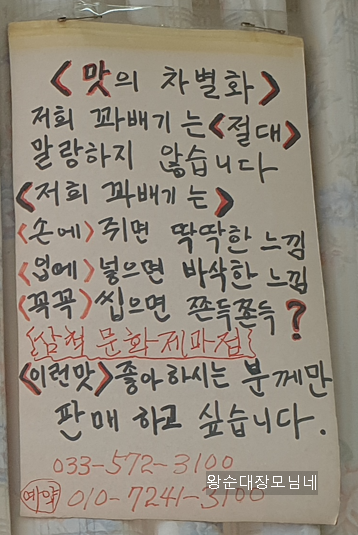 <맛의 차별화>
저희 꽈배기는 <절대>
말랑하지 않습니다
<저희 꽈배기는>
<손에> 쥐면 딱딱한 느낌
<입에> 넣으면 바삭한 느낌
<꼭꼭> 씹으면 쫀득쫀득?
{삼척 문화제과점}
<이런맛> 좋아하시는 분께만
판매 하고 싶습니다.
033-572-3100
예약 010-7241-3100
왕순대장모님네